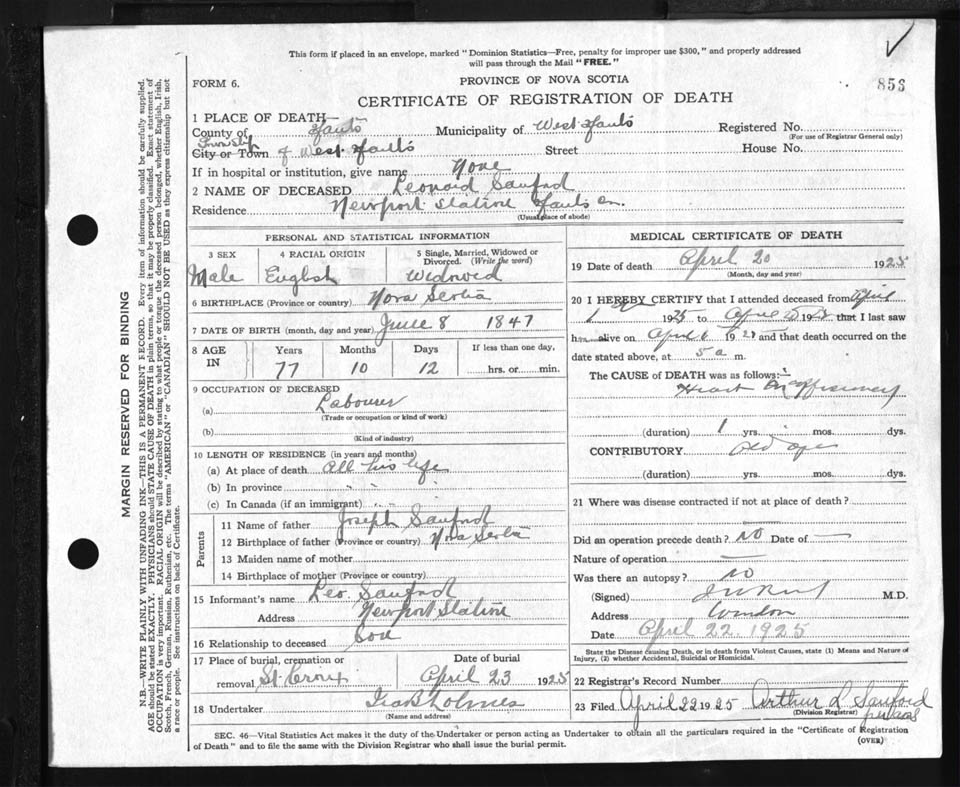 This form if placed in an envelope, marked "Dominion Statistics—Free, penalty for improper use $300," and properly addressed
will pass through the Mail "FREE."
FORM 6.
PROVINCE OF NOVA SCOTIA
853
CERTIFICATE OF REGISTRATION OF DEATH
1 PLACE OF DEATH—
County of Hants Municipality of West Hants Registered No.
(For use of Registrar General only)
Township
City or Town of West Hants Street House No.
If in hospital or institution, give name None
2 NAME OF DECEASED Leonard Sanford
Residence Newport Station Hants Co.
(Usual place of abode)
PERSONAL AND STATISTICAL INFORMATION
3 SEX 4 RACIAL ORIGIN 5 Single, Married, Widowed or
Divorced. (Write the word)
Male English Widowed
6 BIRTHPLACE (Province or country) Nova Scotia
7 DATE OF BIRTH (month, day and year) June 8 1847
8 AGE IN Years Months Days If less than one day,
77 10 12 hrs. or min.
9 OCCUPATION OF DECEASED
(a) Labourer
(Trade or occupation or kind of work)
(b)
(Kind of industry)
10 LENGTH OF RESIDENCE (in years and months)
(a) At place of death all his life
(b) In province " "
(c) In Canada (if an immigrant) " "
Parents
11 Name of father Joseph Sanford
12 Birthplace of father (Province or country) Nova Scotia
13 Maiden name of mother
14 Birthplace of mother (Province or country)
15 Informant's name Leo. Sanford
Address Newport Station
16 Relationship to deceased Son
17 Place of burial, cremation or Date of burial
removal St. Croix April 23 1925
18 Undertaker Holmes
(Name and address)
MEDICAL CERTIFICATE OF DEATH
19 Date of death April 20 1925
(Month, day and year)
20 I HEREBY CERTIFY that I attended deceased from April
1 1925 to April 19 that I last saw
h alive on April 19 and that death occurred on the
date stated above, at 5 a m.
The CAUSE of DEATH was as follows:
Heart Insufficiency
(duration) 1 yrs. mos. dys.
CONTRIBUTORY old age
(duration) yrs. mos. dys.
21 Where was disease contracted if not at place of death?
Did an operation precede death? NO Date of —
Nature of operation —
Was there an autopsy? no
(Signed) M.D.
Address Windsor
Date April 22. 1925
State the Disease causing Death, or in death from Violent Causes, state (1) Means and Nature of
Injury, (2) whether Accidental, Suicidal or Homicidal.
22 Registrar's Record Number
23 Filed April 22 1925 Arthur L Sanford
(Division Registrar)
SEC. 46—Vital Statistics Act makes it the duty of the Undertaker or person acting as Undertaker to obtain all the particulars required in the "Certificate of Registration
of Death" and to file the same with the Division Registrar who shall issue the burial permit.
(OVER)
MARGIN RESERVED FOR BINDING
N.B.—WRITE PLAINLY WITH UNFADING INK—THIS IS A PERMANENT RECORD. Every item of information should be carefully supplied.
AGE should be stated EXACTLY. PHYSICIANS should STATE CAUSE OF DEATH in plain terms, so that it may be properly classified. Exact statement of
OCCUPATION is very important. RACIAL ORIGIN will be described by stating to what people or tongue the deceased person belonged, whether English, Irish,
Scotch, French, German, Russian, Ruthenian, etc. The terms "AMERICAN" or "CANADIAN" SHOULD NOT BE USED as they express citizenship but not
a race or people. See instructions on back of Certificate.